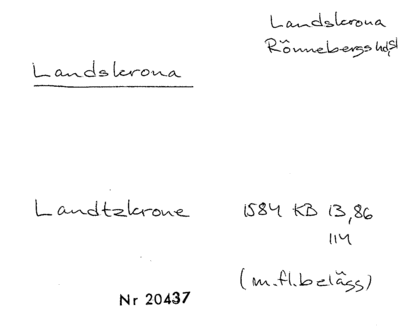 Landskrona
Rönnebergs hd, sl
Landskrona
Landtzkrone 1584 KB 13,86
114
(m.fl.belägg)
Nr 20437